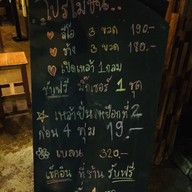 โปรโมชั่น...
ลีโอ 3 ขวด 190.-
ช้าง 3 ขวด 180.-
เปิดเหล้า 1 กลม
ชาฟรี มิ๊กเซอร์ 1 ชุด
เหล้าปั่น เหยือกที่ 2
ก่อน 4 ทุ่ม 19.-
เบลน 320.-
เช็คอิน ที่ร้าน รับฟรี
1